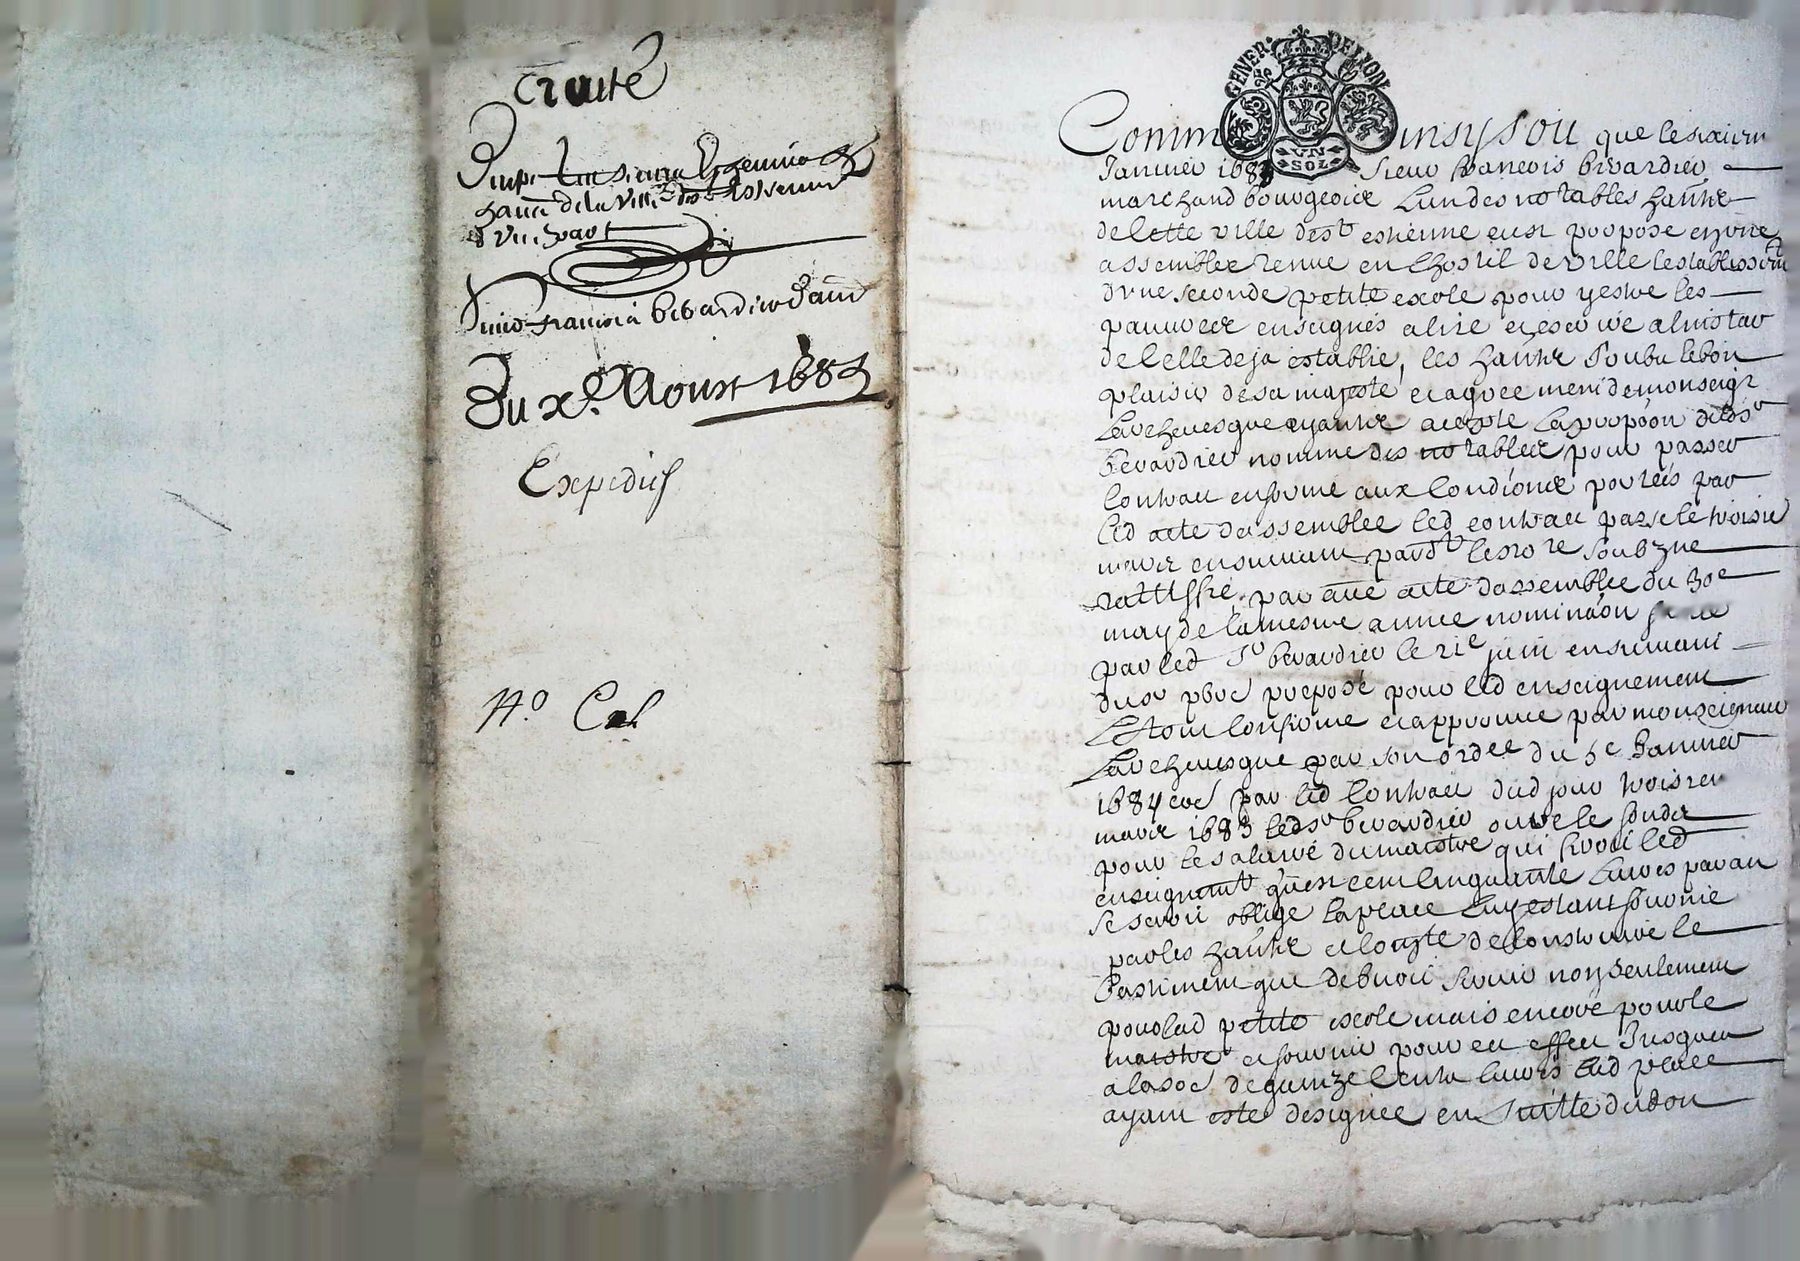 Traité
de la Ville de St Estienne
d'Une part
Sieur francois berardier d'autre
Du xe. Aoust 1685
Expedié
GENER. DE LYON
VN
SOL
Comme ainsy soit que le sixiem
Janvier 168 Sieur francois berardier
marchand bourgeoice Lun des notables habnts
de cette ville de st estienne eust propose en une
assemblee tenue en Lhostel de ville lestablissemt
dune seconde petite escole pour y estre les
pauvres enseignés a lire et escrire a linstar
de celle deja establie, les habnts soubz le bon
plaisir de sa majesté et agreement de monseigr
Larchevesque ayants accepte La propoon dudt sr
berardier nomme des notables pour passer
Contract conforme aux Condiōns portées par
led acte dassemblee led contract passe le troisie
mars ensuivant pardt le no re soubzne
rattiffié par autre acte dassemblee du 30e
may de la mesme annee nominaōn faite
par led Sr berardier le 21e juin ensuivant
du sr preposé pour led enseignement
Le tout confirme et approuve par monseigneur
Larchevesque par son ordce du 5e Janvier
1684 par led Contract dud jour troisien
mars 1683 led sr berardier outre le fonder
pour le salaire du maistre qui feroit led
enseignemt quest cent cinquante Livres par an
se seroit obligé la place luy estant fournie
par les habnts de construire le
bastiment que debvoit servir non seulement
pour lad petite escole mais encore pour le
maistre et fournir pour cet effect Jusques
a la soe de quinze Cents livres lad place
ayant este designée en suitte dudon